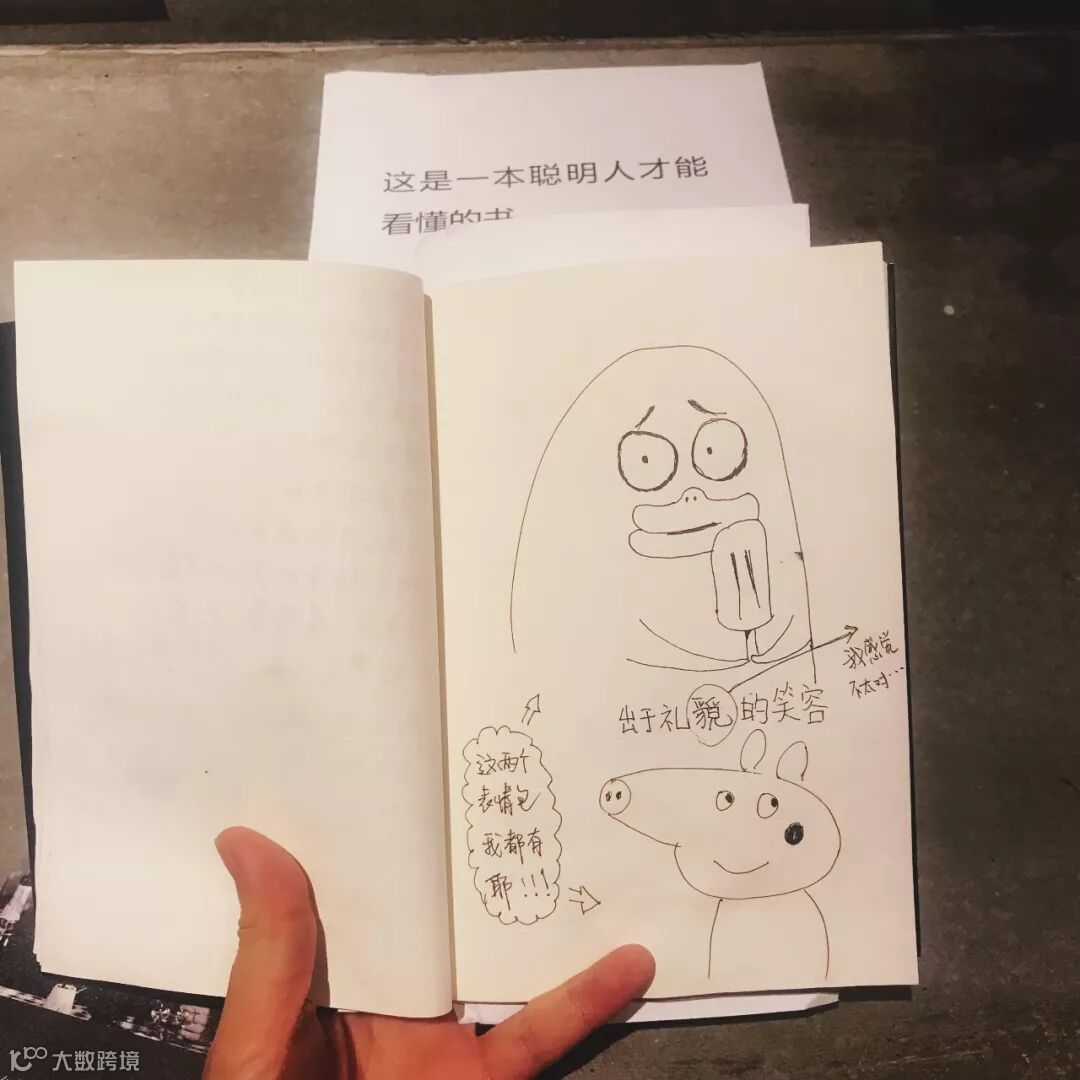 这是一本聪明人才能
看懂的书
我感觉
不太对…
出于礼貌的笑容
这两个
表情包
我都有
耶!!!
大数跨境